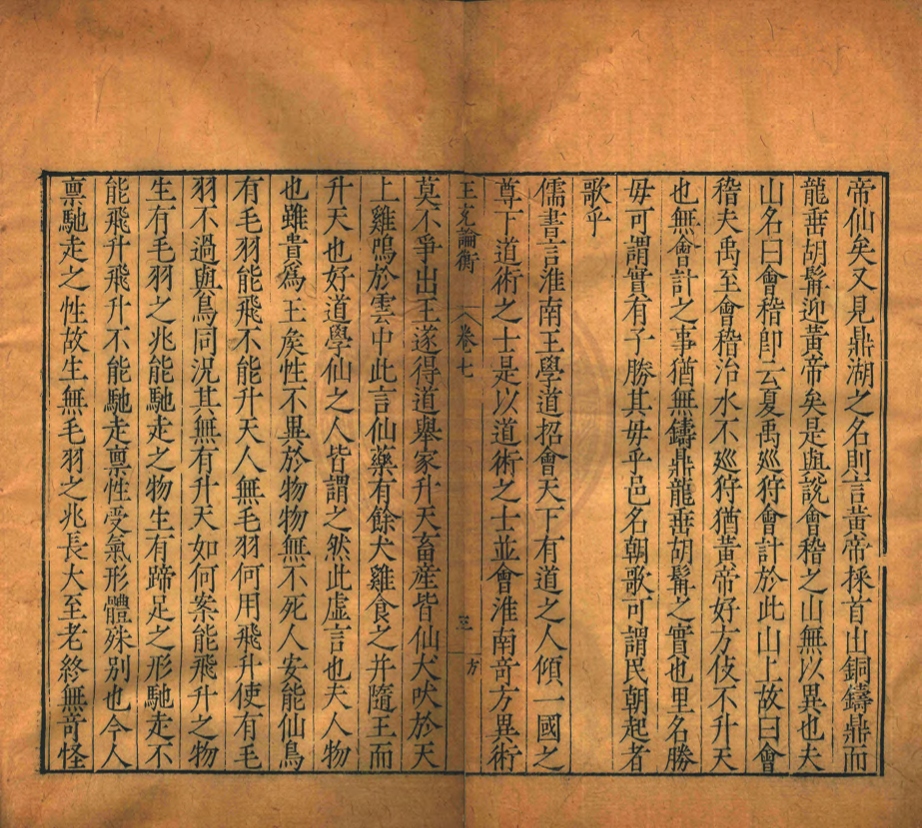 帝仙矣又見鼎湖之名則言黃帝採首山銅鑄鼎而
龍垂胡髯迎黃帝矣是與說會稽之山無以異也夫
山名曰會稽即云夏禹巡狩會計於此山上故曰會
稽夫禹至會稽治水不巡狩猶黃帝好方伎不升天
也無會計之事猶無鑄鼎龍垂胡髯之實也里名勝
母可謂實有子勝其母乎邑名朝歌可謂民朝起者
歌乎
儒書言淮南王學道招會天下有道之人傾一國之
尊下道術之士是以道術之士並會淮南奇方異術
王充論衡 卷七 至 方
莫不爭出王遂得道舉家升天畜産皆仙犬吠於天
上雞鳴於雲中此言仙藥有餘犬雞食之并隨王而
升天也好道學仙之人皆謂之然此虛言也夫人物
也雖貴爲王矦性不異於物物無不死人安能仙鳥
有毛羽能飛不能升天人無毛羽何用飛升使有毛
羽不過與鳥同況其無有升天如何案能飛升之物
生有毛羽之兆能馳走之物生有蹄足之形馳走不
能飛升飛升不能馳走禀性受氣形體殊別也今人
禀馳走之性故生無毛羽之兆長大至老終無奇怪